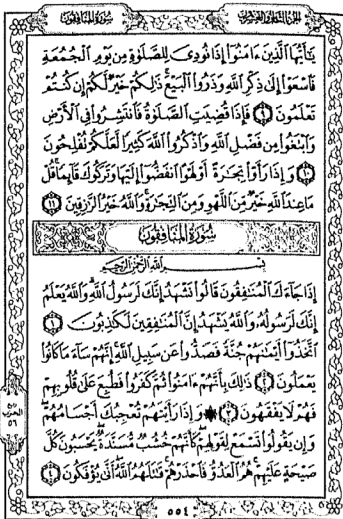 الجزء الثامن والعشرون
سورة المنافقون
يَٰٓأَيُّهَا ٱلَّذِينَ ءَامَنُوٓا۟ إِذَا نُودِىَ لِلصَّلَوٰةِ مِن يَوْمِ ٱلْجُمُعَةِ
فَٱسْعَوْا۟ إِلَىٰ ذِكْرِ ٱللَّهِ وَذَرُوا۟ ٱلْبَيْعَ ۚ ذَٰلِكُمْ خَيْرٌ لَّكُمْ إِن كُنتُمْ
تَعْلَمُونَ ٩ فَإِذَا قُضِيَتِ ٱلصَّلَوٰةُ فَٱنتَشِرُوا۟ فِى ٱلْأَرْضِ
وَٱبْتَغُوا۟ مِن فَضْلِ ٱللَّهِ وَٱذْكُرُوا۟ ٱللَّهَ كَثِيرًا لَّعَلَّكُمْ تُفْلِحُونَ
١٠ وَإِذَا رَأَوْا۟ تِجَٰرَةً أَوْ لَهْوًا ٱنفَضُّوٓا۟ إِلَيْهَا وَتَرَكُوكَ قَآئِمًا ۚ قُلْ
مَا عِندَ ٱللَّهِ خَيْرٌ مِّنَ ٱللَّهْوِ وَمِنَ ٱلتِّجَٰرَةِ ۚ وَٱللَّهُ خَيْرُ ٱلرَّٰزِقِينَ ١١
سورة المنافقون
بِسْمِ ٱللَّهِ ٱلرَّحْمَٰنِ ٱلرَّحِيمِ
إِذَا جَآءَكَ ٱلْمُنَٰفِقُونَ قَالُوا۟ نَشْهَدُ إِنَّكَ لَرَسُولُ ٱللَّهِ ۗ وَٱللَّهُ يَعْلَمُ
إِنَّكَ لَرَسُولُهُۥ وَٱللَّهُ يَشْهَدُ إِنَّ ٱلْمُنَٰفِقِينَ لَكَٰذِبُونَ ١
ٱتَّخَذُوٓا۟ أَيْمَٰنَهُمْ جُنَّةً فَصَدُّوا۟ عَن سَبِيلِ ٱللَّهِ ۚ إِنَّهُمْ سَآءَ مَا كَانُوا۟
يَعْمَلُونَ ٢ ذَٰلِكَ بِأَنَّهُمْ ءَامَنُوا۟ ثُمَّ كَفَرُوا۟ فَطُبِعَ عَلَىٰ قُلُوبِهِمْ
فَهُمْ لَا يَفْقَهُونَ ٣ ۞ وَإِذَا رَأَيْتَهُمْ تُعْجِبُكَ أَجْسَامُهُمْ ۖ
وَإِن يَقُولُوا۟ تَسْمَعْ لِقَوْلِهِمْ ۖ كَأَنَّهُمْ خُشُبٌ مُّسَنَّدَةٌ ۖ يَحْسَبُونَ كُلَّ
صَيْحَةٍ عَلَيْهِمْ ۚ هُمُ ٱلْعَدُوُّ فَٱحْذَرْهُمْ ۚ قَٰتَلَهُمُ ٱللَّهُ ۖ أَنَّىٰ يُؤْفَكُونَ ٤
الحزب
٥٦
٥٥٤